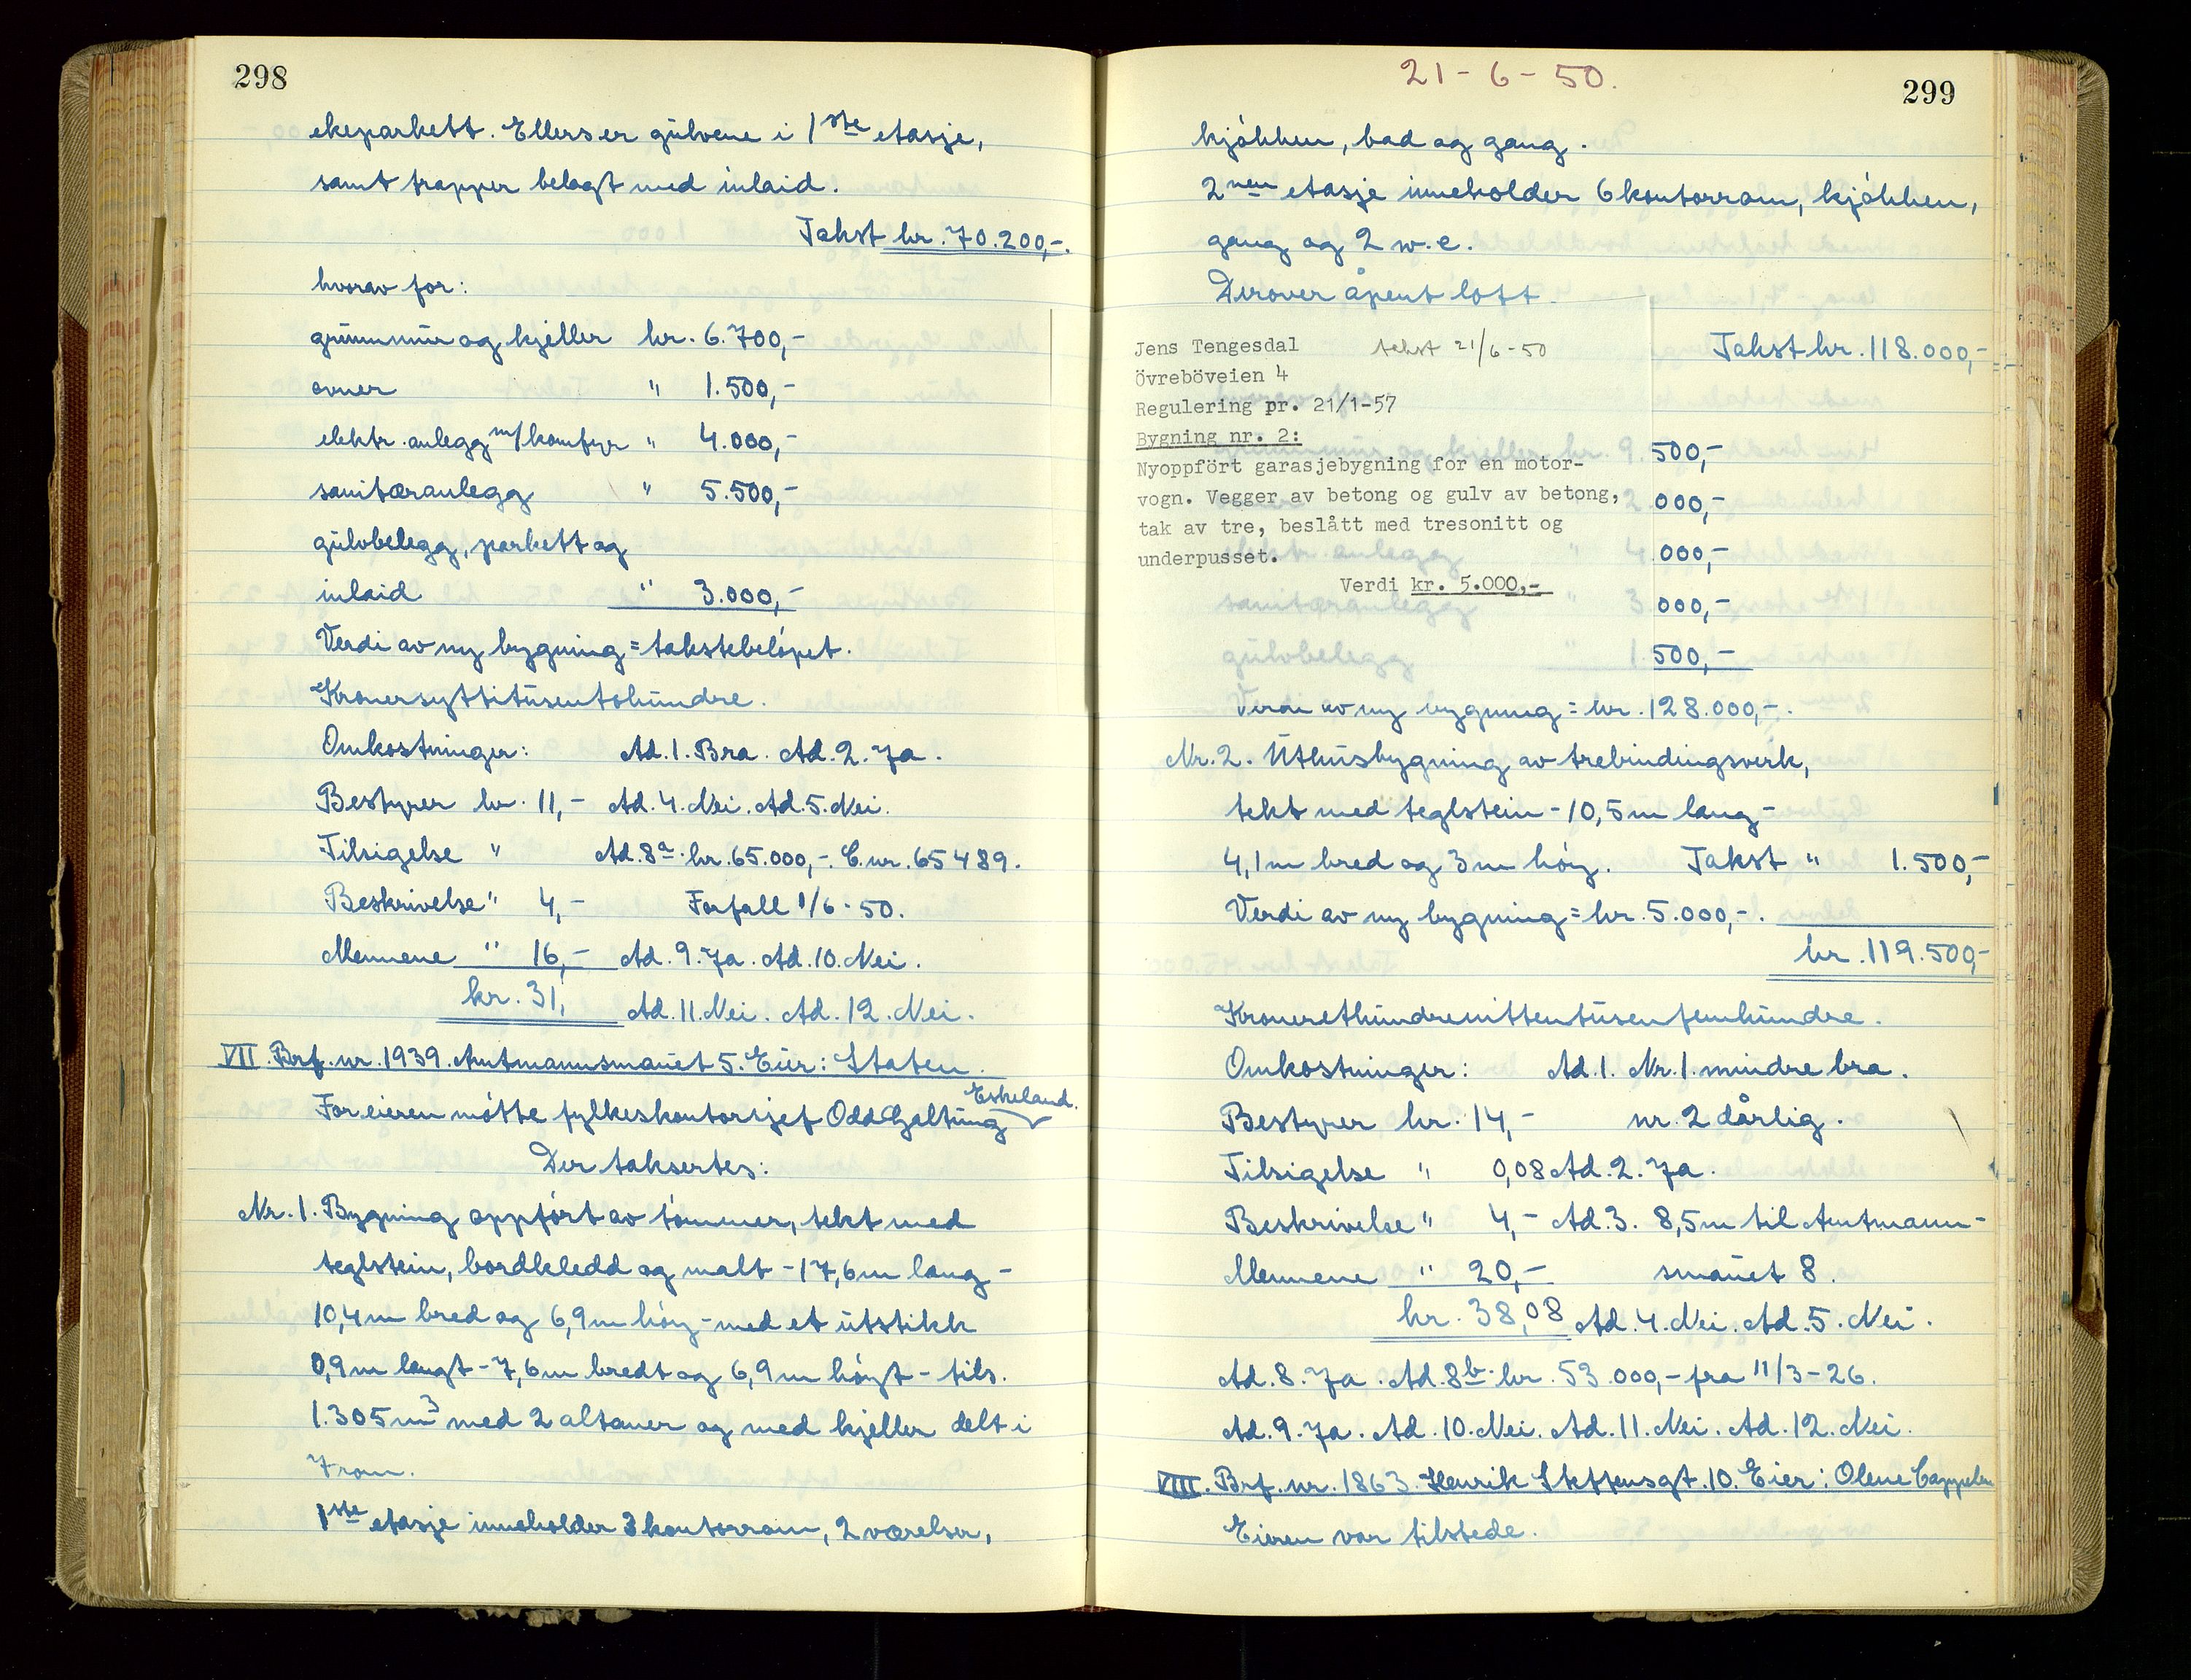 298
ekeparkett. Ellers er gülvene i 1ste etasje,
samt trapper belagt med inlaid.
Takst kr. 70.200,-.
hvorav for:
grünnmür og kjeller kr. 6.700,-
ovner " 1.500,-
elektr. anlegg m/komfyr " 4.000,-
sanitæranlegg " 5.500,-
gülvbelegg, parkett og
inlaid " 3.000,-
Verdi av ny bygning = takstebeløpet.
Kronersyttitüsentohündre.
Omkostninger: Ad. 1. Bra. Ad. 2. Ja.
Bestyrer kr. 11,- Ad. 4. Nei. Ad. 5. Nei.
Tilsigelse " Ad. 8a. kr. 65.000,-. C. nr. 65489.
Beskrivelse " 4,- Forfall 1/6-50.
Mennene " 16,- Ad. 9. Ja. Ad. 10. Nei.
kr. 31,- Ad. 11. Nei. Ad. 12. Nei.
VII. Brf. nr. 1939. Amtmannsmaüet 5. Eier: Staten.
Eskeland.
For eieren møtte fylkeskontorsjef Odd Galtüng
Der taksertes:
Nr. 1. Bygning oppført av tømmer, tekt med
teglstein, bordkledd og malt - 17,6 m lang -
10,4 m bred og 6,9 m høy - med et ütstikk
0,9 m langt - 7,6 m bredt og 6,9 m høyt - tils.
1.305 m3 med 2 altaner og med kjeller delt i
7 rom.
1ste etasje inneholder 3 kontorrom, 2 værelser,
21-6-50.
299
kjøkken, bad og gang.
2nen etasje inneholder 6 kontorrom, kjøkken,
gang og 2 w.c.
Derover åpent loft.
Takst kr. 118.000,-
Jens Tengesdal takst 21/6-50
Övreböveien 4
Regulering pr. 21/1-57
Bygning nr. 2:
Nyoppfört garasjebygning for en motor-
vogn. Vegger av betong og gulv av betong,
tak av tre, beslått med tresonitt og
underpusset.
Verdi kr. 5.000,-
9.500,-
2.000,-
4.000,-
sanitæranlegg " 3.000,-
gülvbelegg " 1.500,-
Verdi av ny bygning = kr. 128.000,-.
Nr. 2. Üthüsbygning av trebindingsverk,
tekt med teglstein - 10,5 m lang -
4,1 m bred og 3 m høy. Takst " 1.500,-
Verdi av ny bygning = kr. 5.000,-.
kr. 119.500,-
Kronerethündrenittentüsenfemhündre.
Omkostninger: Ad. 1. Nr. 1. mindre bra.
Bestyrer kr. 14,- nr. 2 dårlig.
Tilsigelse " 0,08 Ad. 2. Ja.
Beskrivelse " 4,- Ad. 3. 8,5 m til Amtmann-
Mennene " 20,- smaüet 8.
kr. 38,08 Ad. 4. Nei. Ad. 5. Nei.
Ad. 8. Ja. Ad. 8b. kr. 53.000,- fra 11/3-26.
Ad. 9. Ja. Ad. 10. Nei. Ad. 11. Nei. Ad. 12. Nei.
VIII. Brf. nr. 1863. Henrik Steffensgt. 10. Eier: Olene Cappelen
Eieren var tilstede.